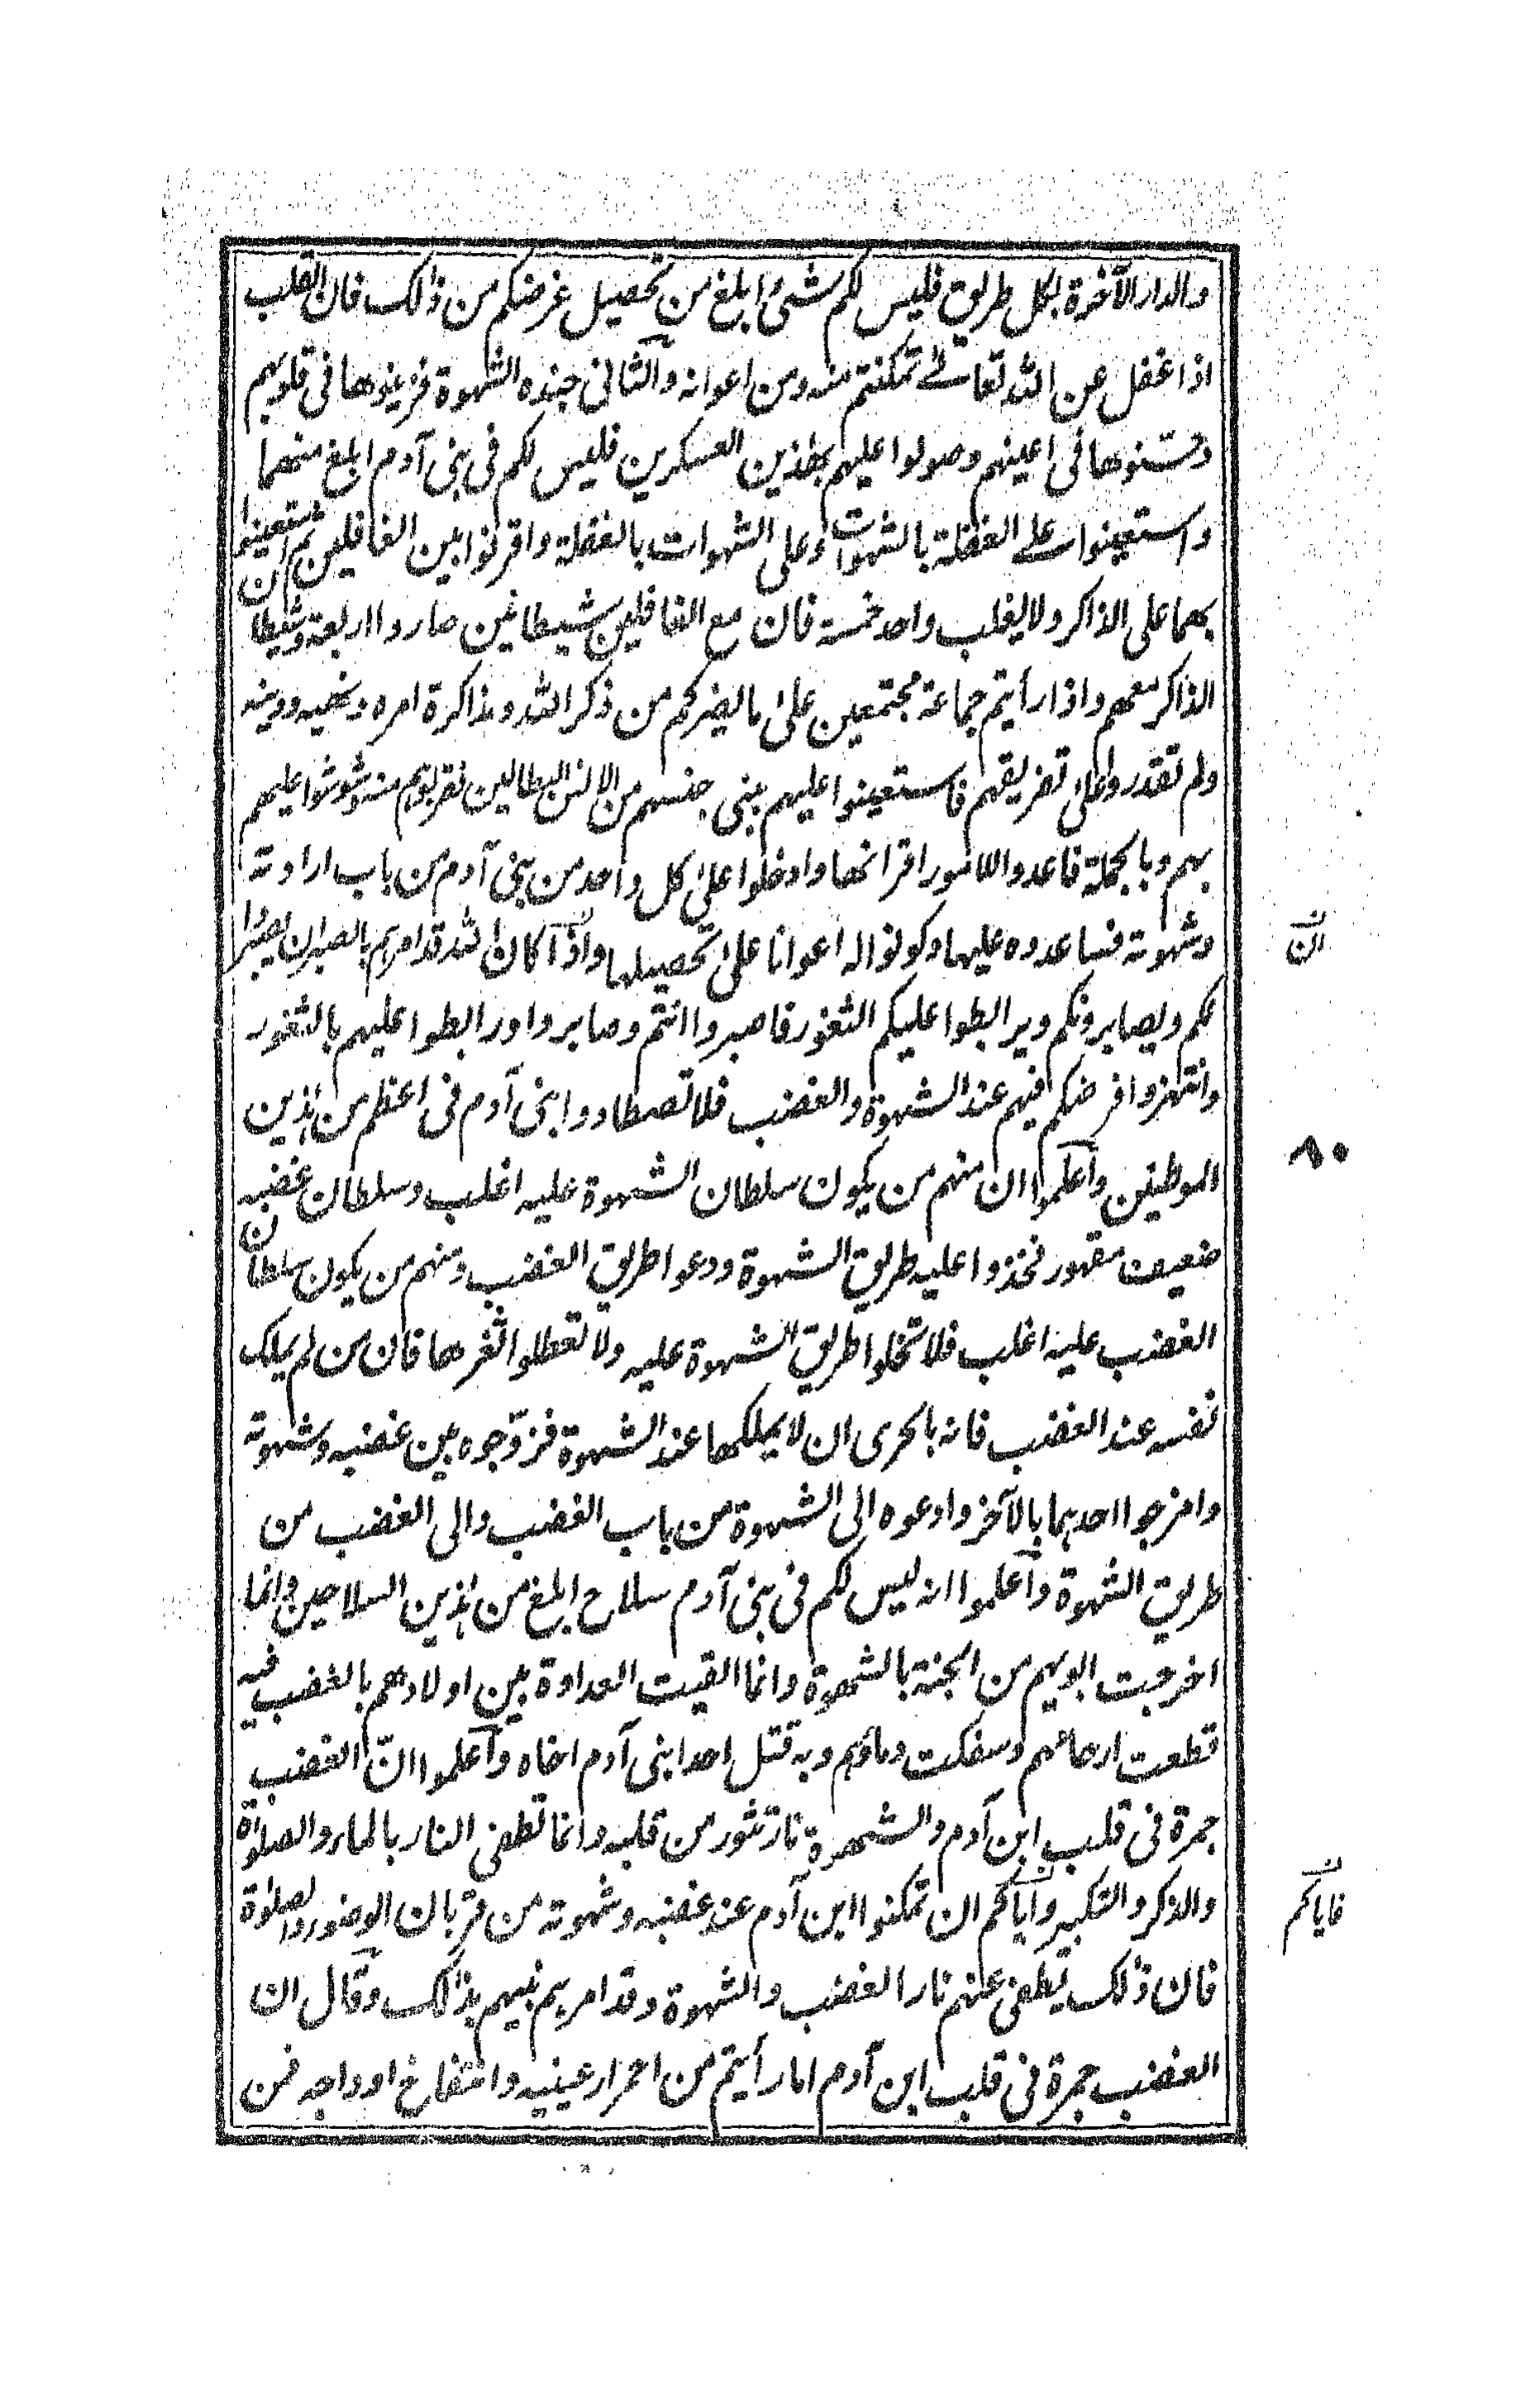 والدار الآخرة بكل طريق فليس لكم شئ ابلغ من تحصيل غرضكم من ذلك فان القلب
اذا غفل عن الله تعالى تمكنتم منه ومن اعوانه والثانى جنده الشهوة فزينوها فى قلوبهم
وحسنوها فى اعينهم وصولوا عليهم بهذين العسكرين فليس لكم فى بنى آدم ابلغ منهما
واستعينوا على الغفلة بالشهوات وعلى الشهوات بالغفلة واقرنوا بين الغافلين ثم استعينوا
بهما على الذاكر ولا يغلب واحد خمسة فان مع الغافلين شيطانين صاروا اربعة وشيطان
الذاكر معهم واذا رأيتم جماعة مجتمعين على ما يضركم من ذكر الله ومذاكرة امره ونهيه ودينه
ولم تقدروا على تفريقهم فاستعينوا عليهم ببنى جنسهم من الانس البطالين فقربوهم منه وشوشوا عليهم
بهم وبالجملة فاعدوا للامور اقرانها وادخلوا على كل واحد من بنى آدم من باب ارادته
وشهوته فساعدوه عليها وكونوا له اعوانا على تحصيلها واذا كان الله قد امرهم بالصبر ان يصبروا
لكم ويصابروكم ويرابطوا عليكم الثغور فاصبروا انتم وصابروا ورابطوا عليهم بالثغور
وانتهزوا فرضكم فيهم عند الشهوة والغضب فلا تصطادوا بنى آدم فى اعظم من هذين
الموطنين واعلموا ان منهم من يكون سلطان الشهوة عليه اغلب وسلطان غضبه
ضعيف مقهور فخذوا عليه طريق الشهوة ودعوا طريق الغضب ومنهم من يكون سلطان
الغضب عليه اغلب فلا تخلوا طريق الشهوة عليه ولا تعطلوا ثغرها فان من لم يملك
نفسه عند الغضب فانه بالحرى ان لا يملكها عند الشهوة فزوّجوه بين غضبه وشهوته
وامزجوا احدهما بالآخر وادعوه الى الشهوة من باب الغضب والى الغضب من
طريق الشهوة واعلموا انه ليس لكم فى بنى آدم سلاح ابلغ من هذين السلاحين وانما
اخرجت ابويهم من الجنة بالشهوة وانما القيت العداوة بين اولادهم بالغضب فبه
قطعت ارحامهم وسفكت دماؤهم وبه قتل احد ابنى آدم اخاه واعلموا انّ الغضب
جمرة فى قلب ابن آدم والشهوة نار تثور من قلبه وانما تطفى النار بالماء والصلوٰة
والذكر والتكبير واياكم ان تمكنوا ابن آدم عند غضبه وشهوته من قربان الوضوء والصلوٰة
فان ذلك يطفى عنهم نار الغضب والشهوة وقد امرهم نبيهم بذلك وقال ان
الغضب جمرة فى قلب ابن آدم اما رأيتم من احمرار عينيه وانتفاخ اوداجه فمن
ان
٨٠
فاياكم